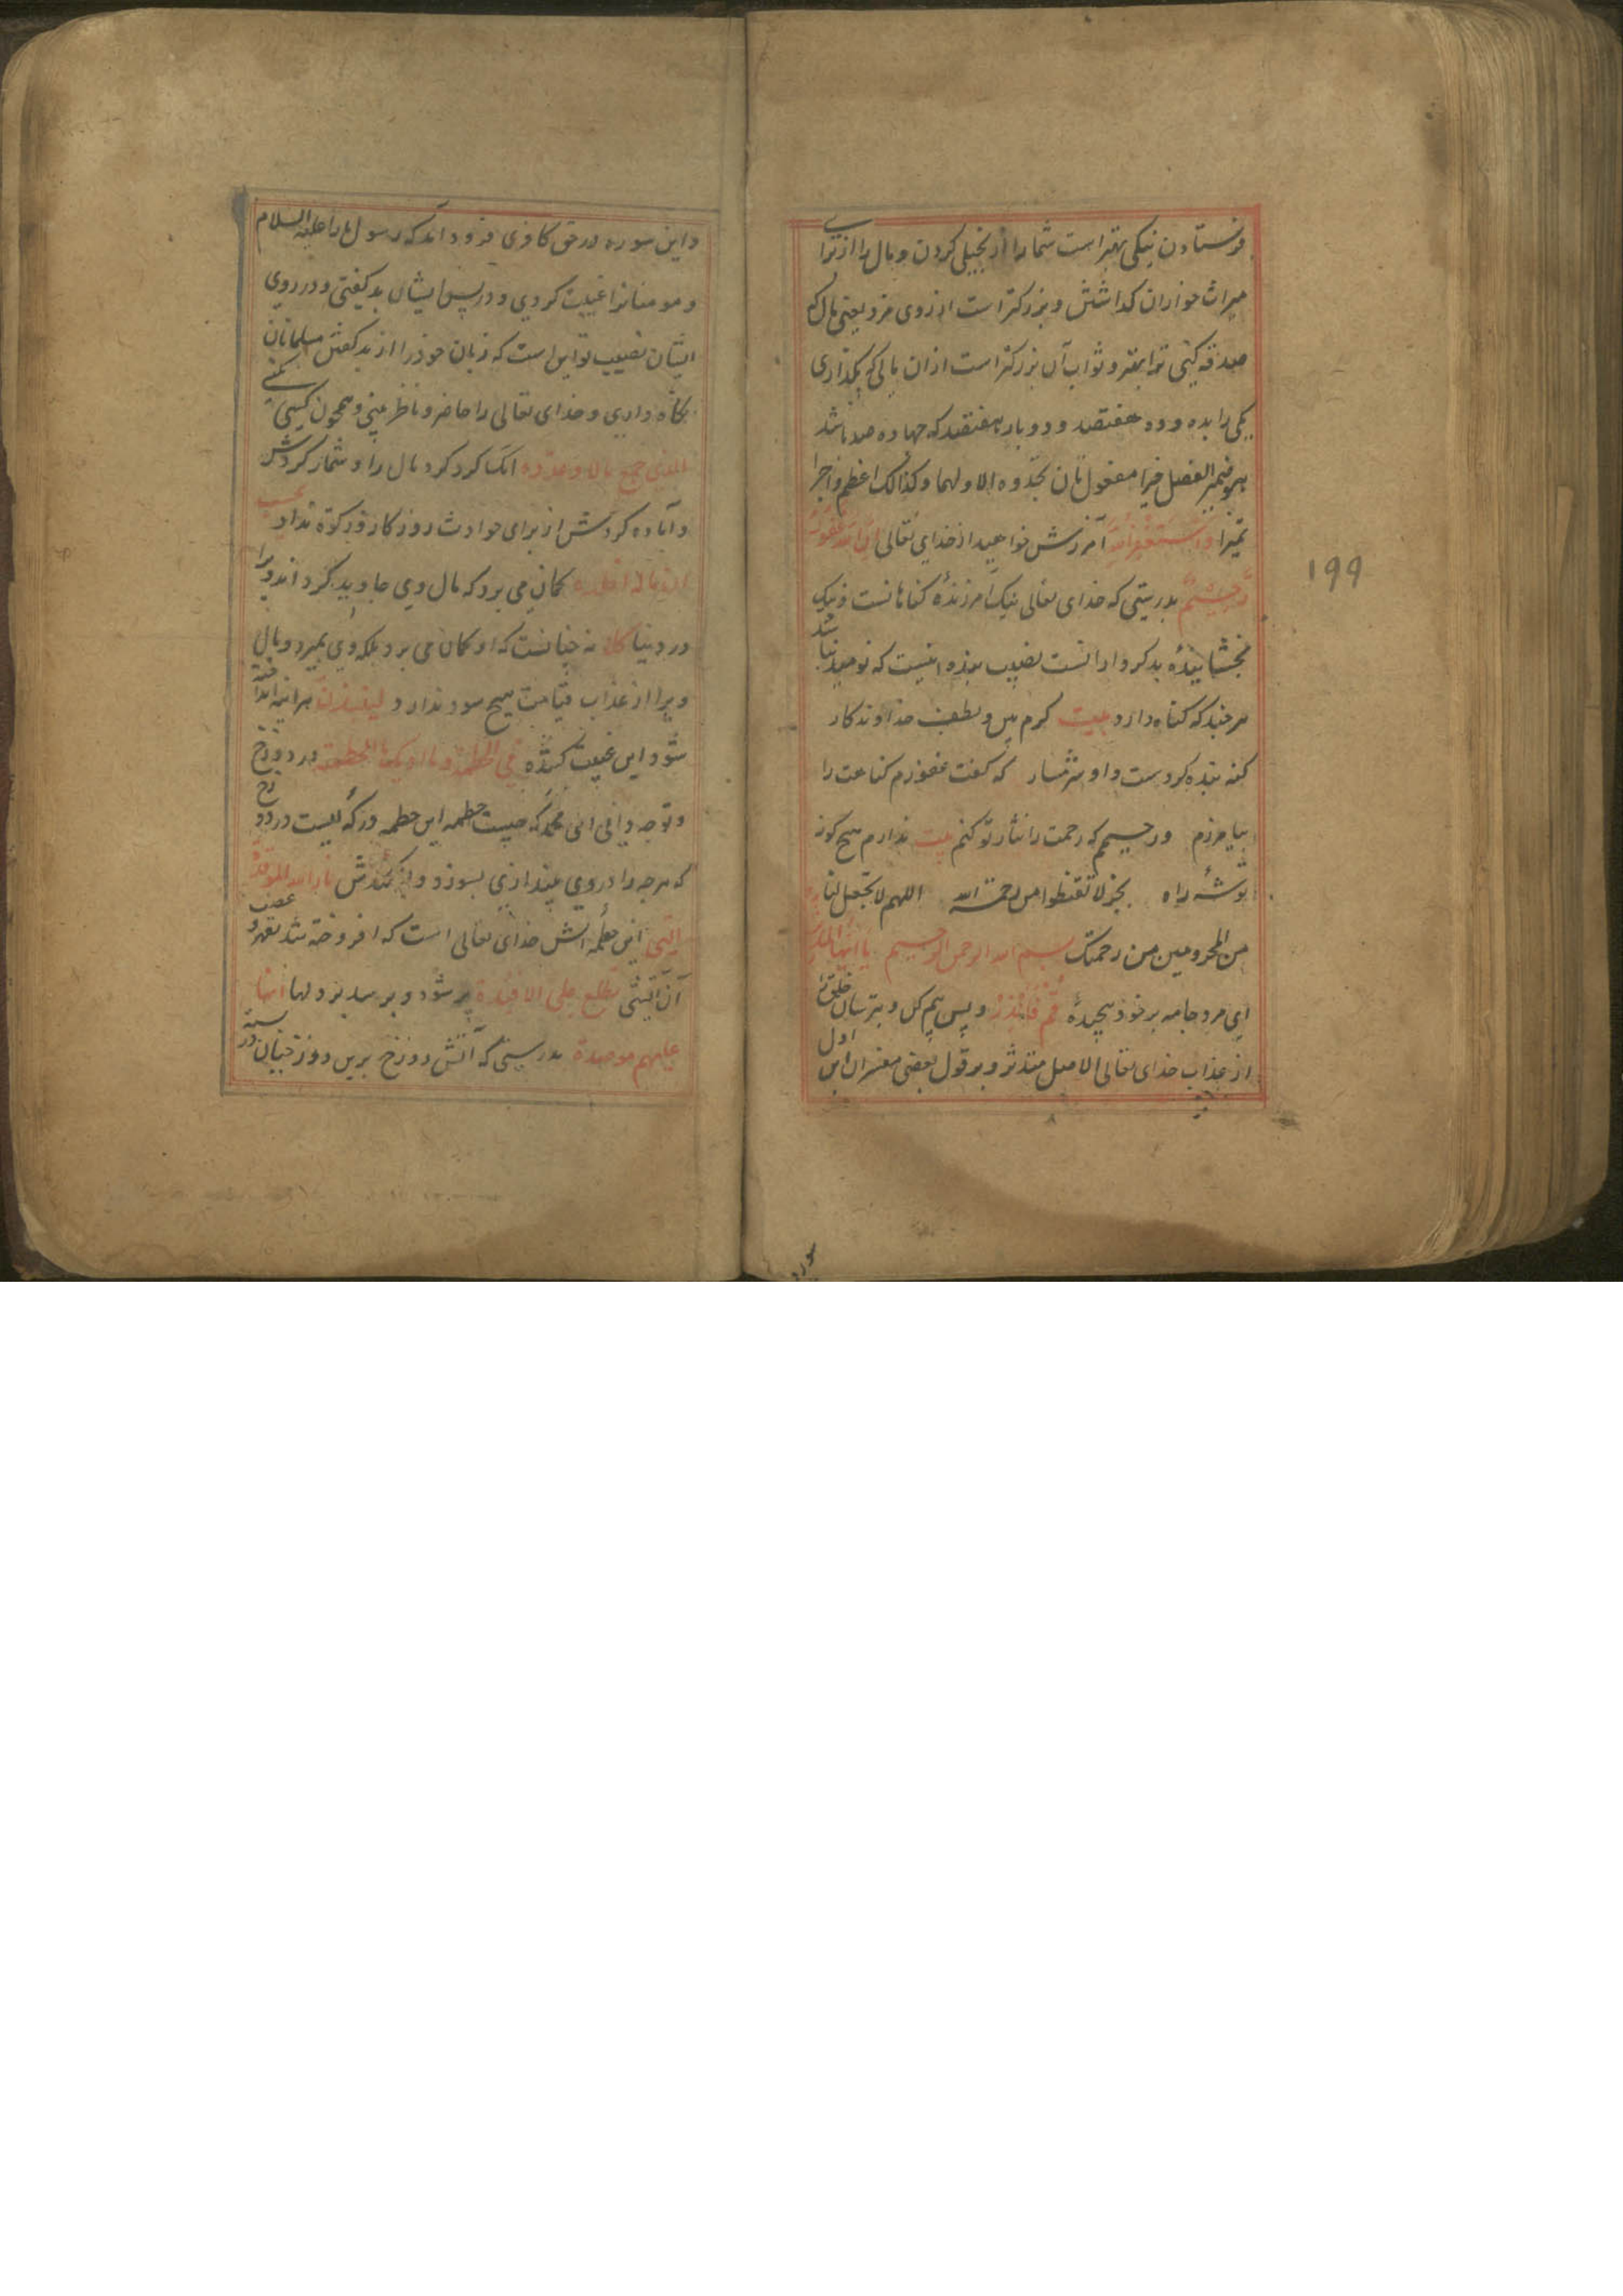 فرستادن نیکی بهترست شما را از بخیلی کردن و مال را از برای
میراث خواران گذاشتن و بزرکتر است از روی مزد یعنی مال که
صدقه کنی ترا بهتر و ثواب آن بزرکتر است ازان مالی که بگذاری
یکی را بده و ده هفتصد و دوبار هفتصد که چهارده صد باشد
هو ضمیر الفصل خیرا مفعول ثان تجدوه الاولهما وکذالک اعظم و اجرا
تمیزا وَاسْتَغْفِرُوا اللهَ آمرزش خواهید از خدای تعالی اِنَّ اللهَ غَفُورٌ
رَّحِیْمٌ بدرستی که خدای تعالی نیک آمرزندهٔ کناهانست و نیک
بخشایندهٔ بدکردارانست نصیب بنده اینست که نومید نباشد
هرچند که کناه دارد بیت کرم بین و لطف خداوندکار
کنه بنده کردست و او شرمسار که گفت غفورم کناهت را
بیامرزم و رحیمم که رحمت را نثار تو کنم بیت ندارم هیچ کونه
توشهٔ راه بجز لا تقنطوا من رحمة الله اللهم لا تجعل لنا
من المحرومین من رحمتک بسم الله الرحمن الرحیم یَا اَیُّهَا الْمُدَّثِّر
ای مرد جامه بر خود پیچیدهٔ قُمْ فَاَنْذِرْ و پس بیم کن و بترسان خلق را
از عذاب خدای تعالی الاصل متدثر و بر قول بعضی مفسران این اول
۱۹۹
سوره
و این سوره در حق کافری فرود آمد که رسول ما را علیه السلام
و مومنانرا غیبت کردی و در پس ایشان بد کفتی و در روی
ایشان نصیب تو این است که زبان خود را از بد کفتن مسلمانان
نکاه داری و خدای تعالی را حاضر و ناظر بینی و همچون کسی
الذی جمع مالا وعدده انک کرد کرد مال را و شمار کردش
و آماده کردش از برای حوادث روزکار و زکوة نداد یحسب
ان ماله اخلده کمان می برد که مال وی جاوید کرداند ویرا
در دنیا کلا نه چنانست که او کمان می برد بلکه وی بمیرد و مال
ویرا از عذاب قیامت هیچ سود ندارد لینبذن هرآینه انداخته
شود این غیبت کننده فی الحطمة وما ادریک ما الحطمة در دوزخ
و تو چه دانی ای محمد که چیست حطمه این حطمه درکه ایست در دوزخ
که هرچه را در وی بیندازی بسوزد و بشکندش نار الله الموقدة
التی این حطمه آتش خدای تعالی است که افروخته شد بقهر و غضب
آن آتشی تطلع علی الافئدة بر شود و برسد بر دلها انها
علیهم موصدة بدرستی که آتش دوزخ برین دوزخیان در بسته